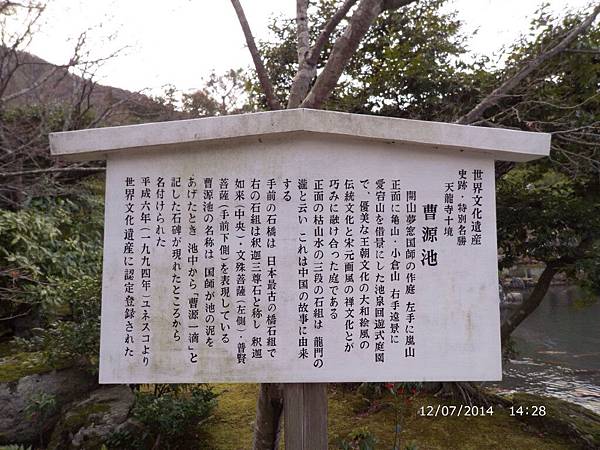 世界文化遺産
史跡・特別名勝
天龍寺十境
曹源池
開山夢窓国師の作庭 左手に嵐山
正面に亀山・小倉山 右手遠景に
愛宕山を借景にした池泉回遊式庭園
で、優美な王朝文化の大和絵風の
伝統文化と宋元画風の禅文化とが
巧みに融け合った庭である
正面の枯山水の三段の石組は 龍門の
瀧と云い これは中国の故事に由来
する
手前の石橋は 日本最古の橋石組で
右の石組は釈迦三尊石と称し 釈迦
如来(中央)・文殊菩薩(左側)・普賢
菩薩(手前下側)を表現している
曹源池の名称は 国師が池の泥を
あげたとき 池中から「曹源一滴」と
記した石碑が現れたところから
名付けられた
平成六年(一九九四年)ユネスコより
世界文化遺産に認定登録された
12/07/2014 14:28